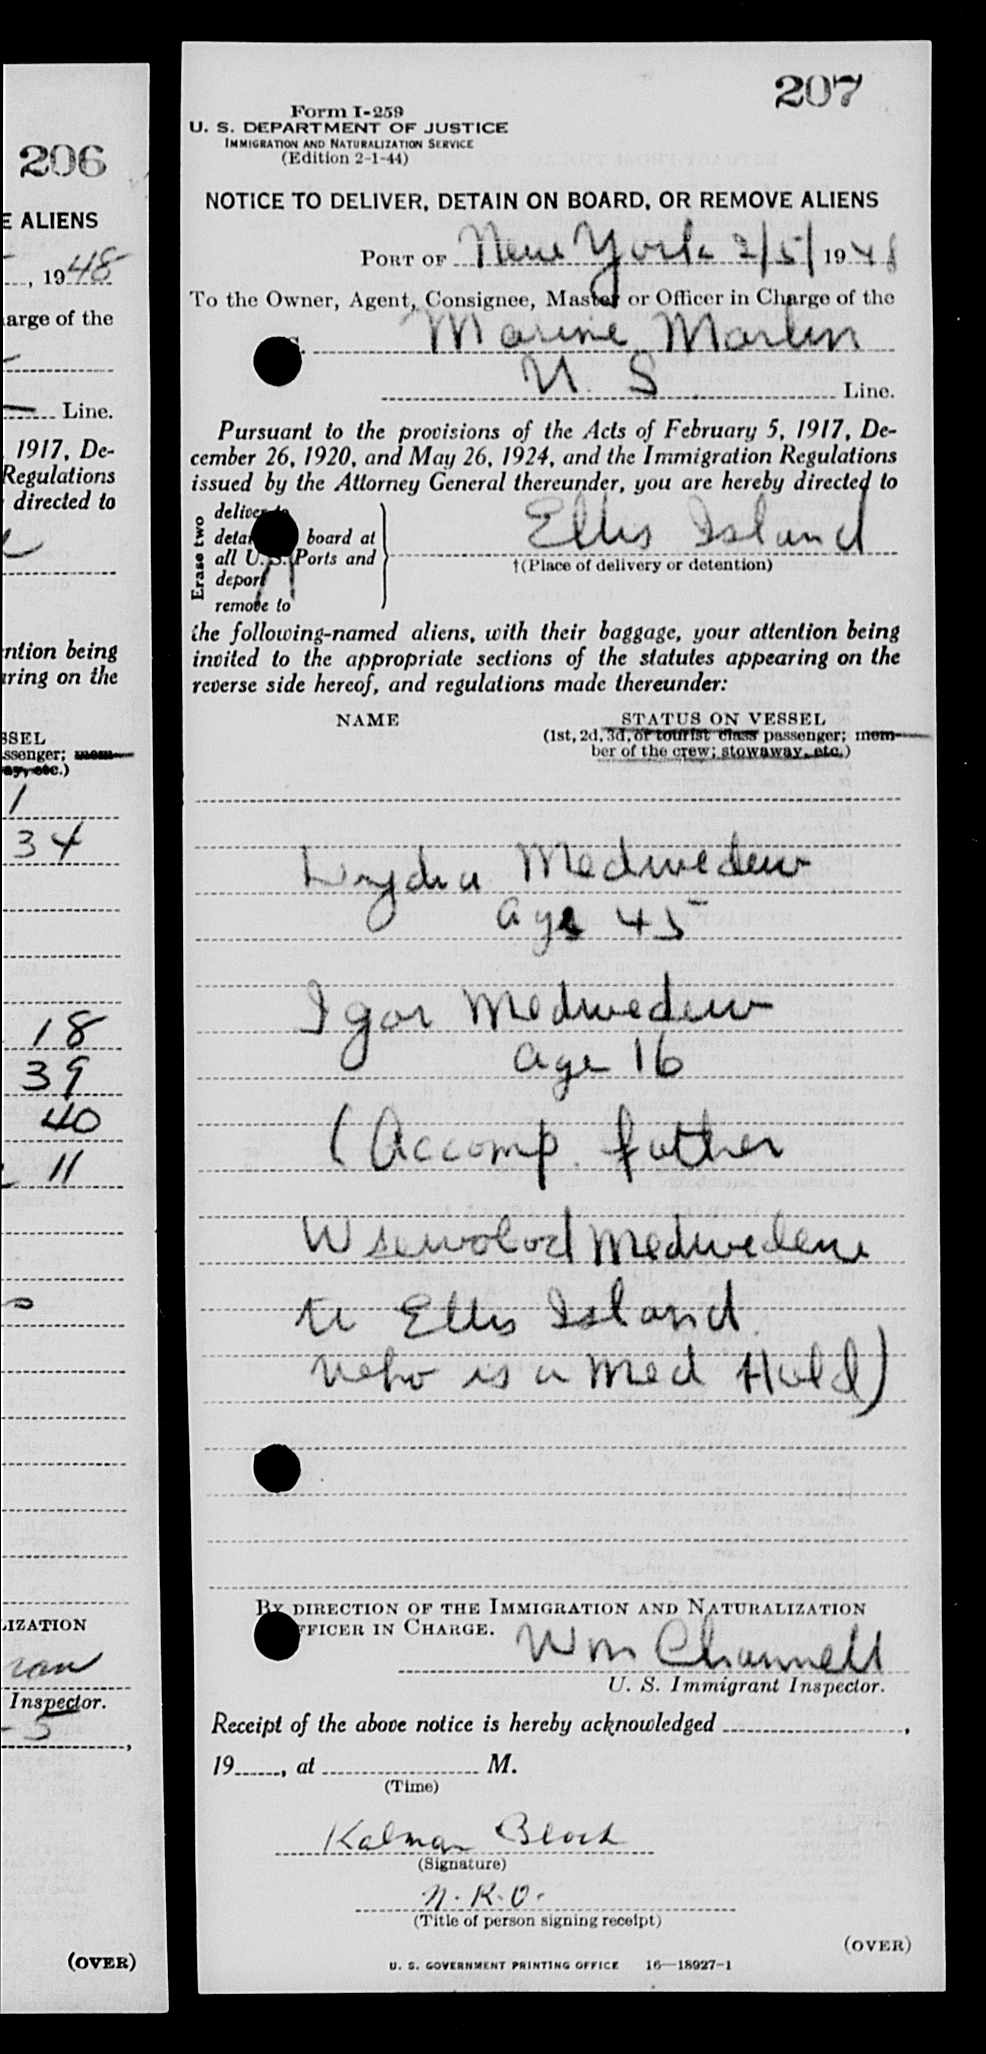 206
E ALIENS
, 1948
arge of the
Line.
1917, De-
Regulations
directed to
ntion being
uring on the
SSEL
ssenger; mem-
ay, etc.)
1
34
18
39
40
11
LIZATION
Inspector.
5
(OVER)
207
Form I-259
U. S. DEPARTMENT OF JUSTICE
IMMIGRATION AND NATURALIZATION SERVICE
(Edition 2-1-44)
NOTICE TO DELIVER, DETAIN ON BOARD, OR REMOVE ALIENS
PORT OF New York 2/5/1948
To the Owner, Agent, Consignee, Master or Officer in Charge of the
S. Marine Marlin
U. S Line.
Pursuant to the provisions of the Acts of February 5, 1917, De-
cember 26, 1920, and May 26, 1924, and the Immigration Regulations
issued by the Attorney General thereunder, you are hereby directed to
Erase two
deliver to
detain board at
all U. S. Ports and
deport
remove to
Ellis Island
†(Place of delivery or detention)
the following-named aliens, with their baggage, your attention being
invited to the appropriate sections of the statutes appearing on the
reverse side hereof, and regulations made thereunder:
NAME STATUS ON VESSEL
(1st, 2d, 3d, or tourist class passenger; mem-
ber of the crew; stowaway, etc.)
Lydia Medwedew
age 45
Igor Medwedew
age 16
(Accomp. father
Wsewolod Medwedew
to Ellis Island
who is a Med Hold)
BY DIRECTION OF THE IMMIGRATION AND NATURALIZATION
FFICER IN CHARGE.
Wm Channell
U. S. Immigrant Inspector.
Receipt of the above notice is hereby acknowledged ,
19 , at M.
(Time)
Kalman Block
(Signature)
N.R.O.
(Title of person signing receipt)
(OVER)
U. S. GOVERNMENT PRINTING OFFICE 16—18927-1